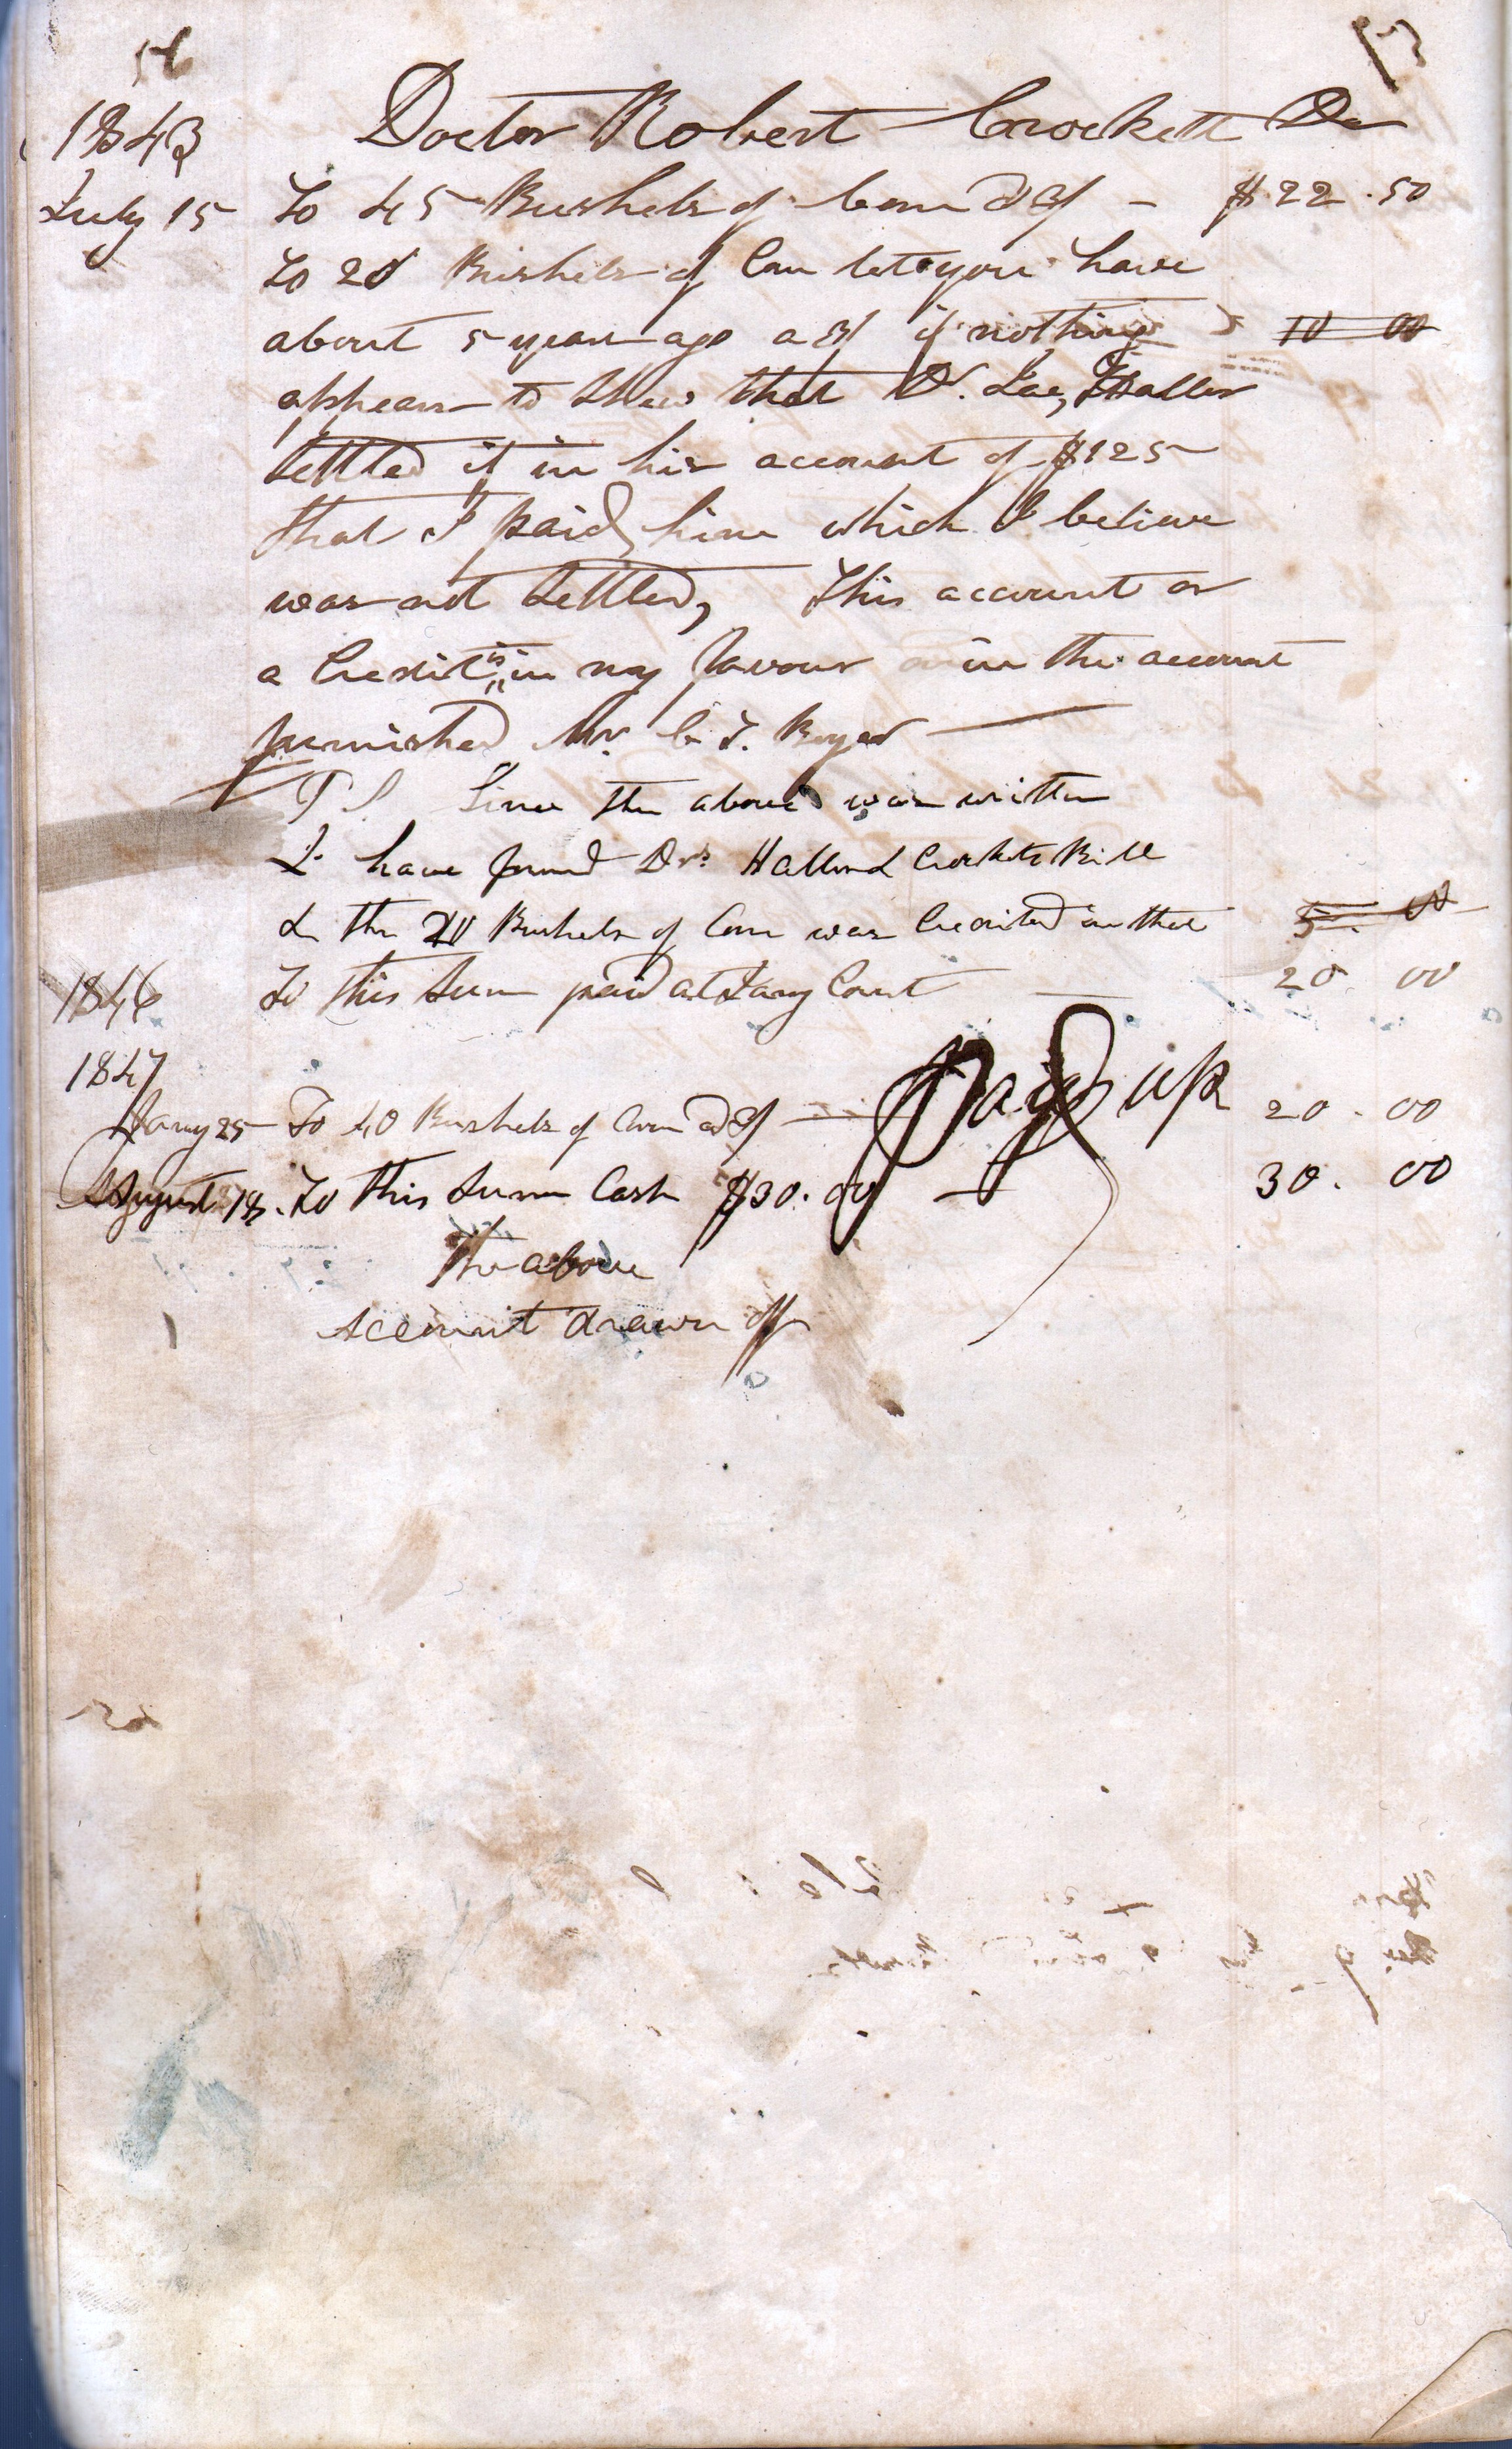 56
1843 Doctor Robert Crockett Dr
July 15 To 45 Bushels of Corn @ 3/ - $22.50
To 20 Bushels of Corn let you have
about 5 years ago a 3/ if nothing 10 00
appears to Shew that D. Haller
Settled it in his account of $125
that I paid him which I believe
was not Settled, This account or
a Credit is in my favour in the account
furnished Mr. C. T. Boyed
P S Since the above was written
I have found Drs. Hall and Crocketts Bill
& the 20 Bushels of Corn was Credited on that 5
1846 To this Sum paid at Court 20 00
1847
Jany 25 To 40 Bushels of Corn @ 3/ Paid up 20.00
August 18. To this Sum Cash $30.00 30.00
The above
account drawn off